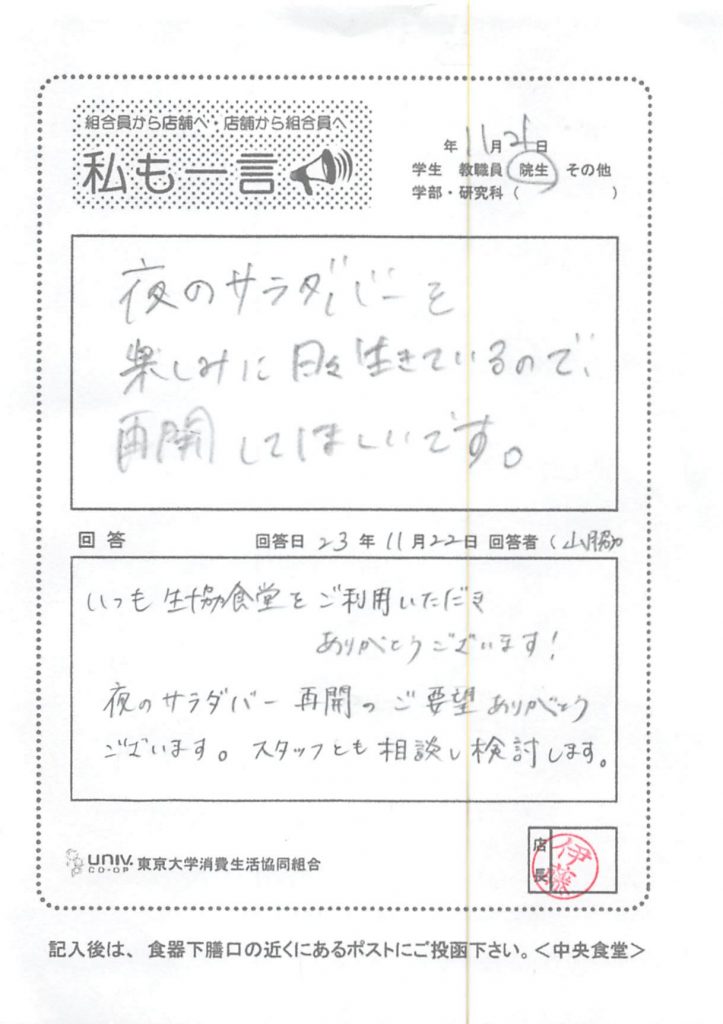 組合員から店舗へ・店舗から組合員へ
私も一言
年 11月21日
学生 教職員 院生 その他
学部・研究科( )
夜のサラダバーを
楽しみに日々生きているので、
再開してほしいです。
回答 回答日 23年11月22日 回答者(山脇
いつも生協食堂をご利用いただき
ありがとうございます!
夜のサラダバー再開のご要望ありがとう
ございます。スタッフとも相談し検討します。
UNIV. CO-OP 東京大学消費生活協同組合
店長 伊藤
記入後は、食器下膳口の近くにあるポストにご投函下さい。<中央食堂>